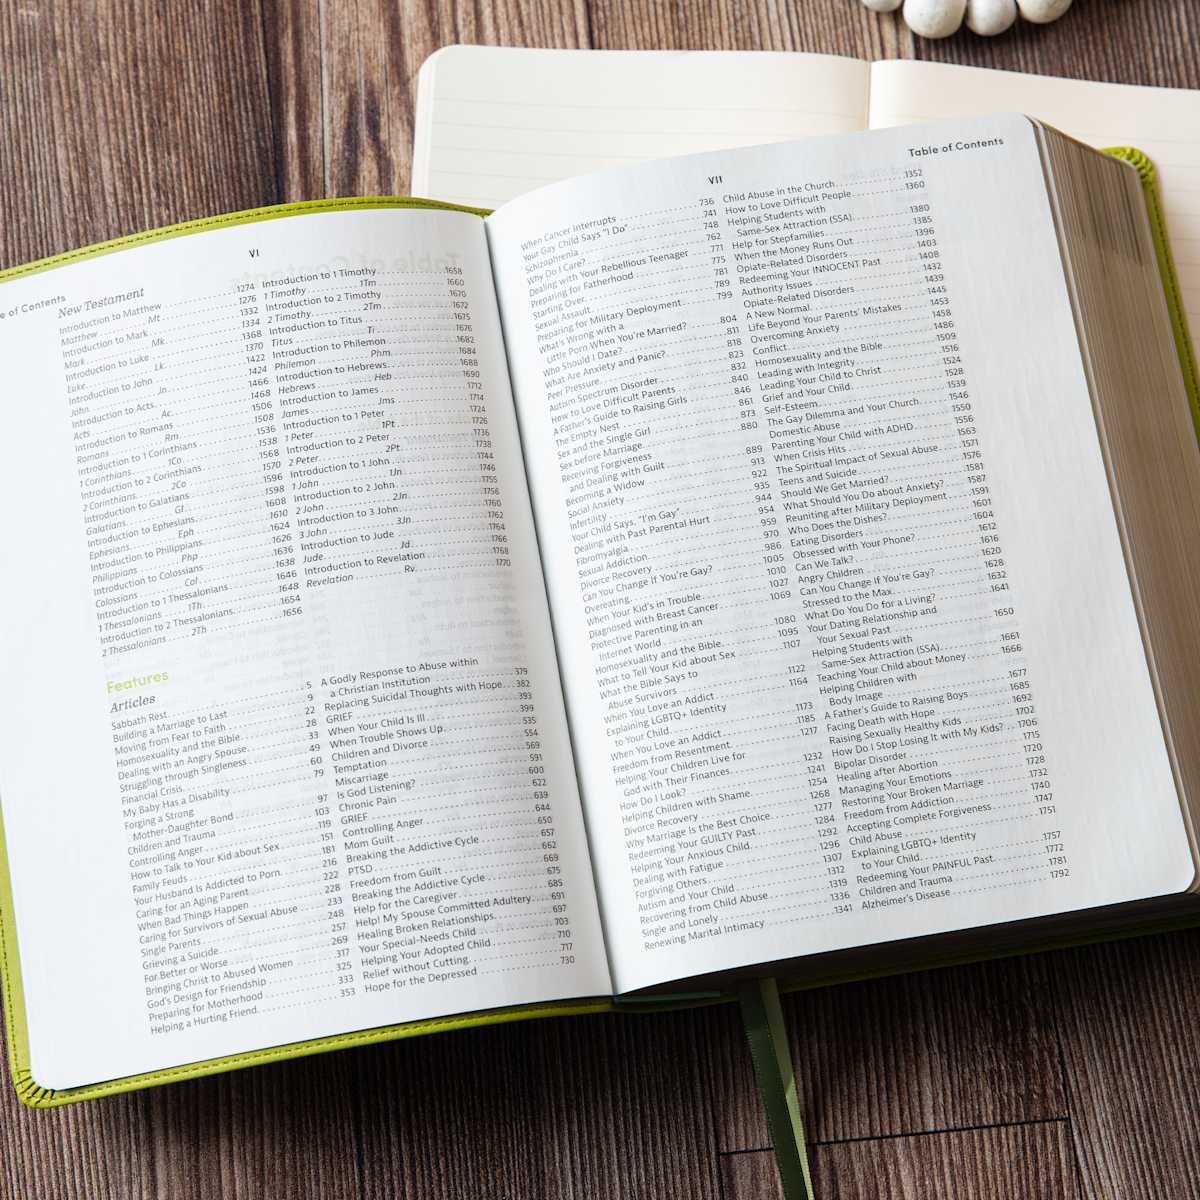 VI
e of Contents
New Testament
Introduction to Matthew 1274
Matthew Mt 1276
Introduction to Mark 1332
Mark Mk 1334
Introduction to Luke 1368
Luke Lk 1370
Introduction to John 1422
John Jn 1424
Introduction to Acts 1466
Acts Ac 1468
Introduction to Romans 1506
Romans Rm 1508
Introduction to 1 Corinthians 1536
1 Corinthians 1Co 1538
Introduction to 2 Corinthians 1568
2 Corinthians 2Co 1570
Introduction to Galatians 1596
Galatians Gl 1598
Introduction to Ephesians 1608
Ephesians Eph 1610
Introduction to Philippians 1624
Philippians Php 1626
Introduction to Colossians 1636
Colossians Col 1638
Introduction to 1 Thessalonians 1646
1 Thessalonians 1Th 1648
Introduction to 2 Thessalonians 1654
2 Thessalonians 2Th 1656
Introduction to 1 Timothy 1658
1 Timothy 1Tm 1660
Introduction to 2 Timothy 1670
2 Timothy 2Tm 1672
Introduction to Titus 1675
Titus Ti 1676
Introduction to Philemon 1682
Philemon Phm 1684
Introduction to Hebrews 1688
Hebrews Heb 1690
Introduction to James 1712
James Jms 1714
Introduction to 1 Peter 1724
1 Peter 1Pt 1726
Introduction to 2 Peter 1736
2 Peter 2Pt 1738
Introduction to 1 John 1744
1 John 1Jn 1746
Introduction to 2 John 1755
2 John 2Jn 1756
Introduction to 3 John 1760
3 John 3Jn 1762
Introduction to Jude 1764
Jude Jd 1766
Introduction to Revelation 1768
Revelation Rv 1770
Features
Articles
Sabbath Rest 5
Building a Marriage to Last 9
Moving from Fear to Faith 22
Homosexuality and the Bible 28
Dealing with an Angry Spouse 33
Struggling through Singleness 49
Financial Crisis 60
My Baby Has a Disability 79
Forging a Strong
Mother-Daughter Bond 97
Children and Trauma 103
Controlling Anger 119
How to Talk to Your Kid about Sex 151
Family Feuds 181
Your Husband Is Addicted to Porn 216
Caring for an Aging Parent 222
When Bad Things Happen 228
Caring for Survivors of Sexual Abuse 233
Single Parents 248
Grieving a Suicide 257
For Better or Worse 269
Bringing Christ to Abused Women 317
God's Design for Friendship 325
Preparing for Motherhood 333
Helping a Hurting Friend 353
A Godly Response to Abuse within
a Christian Institution 379
Replacing Suicidal Thoughts with Hope 382
GRIEF 393
When Your Child Is Ill 399
When Trouble Shows Up 535
Children and Divorce 554
Temptation 569
Miscarriage 591
Is God Listening? 600
Chronic Pain 622
GRIEF 639
Controlling Anger 644
Mom Guilt 650
Breaking the Addictive Cycle 657
PTSD 662
Freedom from Guilt 669
Breaking the Addictive Cycle 675
Help for the Caregiver 685
Help! My Spouse Committed Adultery 691
Healing Broken Relationships 697
Your Special-Needs Child 703
Helping Your Adopted Child 710
Relief without Cutting 717
Hope for the Depressed 730
VII
Table of Contents
When Cancer Interrupts 736
Your Gay Child Says "I Do" 741
Schizophrenia 748
Why Do I Care? 762
Dealing with Your Rebellious Teenager 771
Preparing for Fatherhood 775
Starting Over 781
Sexual Assault 789
Preparing for Military Deployment 799
What's Wrong with a
Little Porn When You're Married? 804
Who Should I Date? 811
What Are Anxiety and Panic? 818
Peer Pressure 823
Autism Spectrum Disorder 832
How to Love Difficult Parents 840
A Father's Guide to Raising Girls 846
The Empty Nest 861
Sex and the Single Girl 873
Sex before Marriage 880
Receiving Forgiveness
and Dealing with Guilt 889
Becoming a Widow 913
Social Anxiety 922
Infertility 935
Your Child Says, "I'm Gay" 944
Dealing with Past Parental Hurt 954
Fibromyalgia 959
Sexual Addiction 970
Divorce Recovery 986
Can You Change If You're Gay? 1005
Overeating 1010
When Your Kid's in Trouble 1027
Diagnosed with Breast Cancer 1069
Protective Parenting in an
Internet World 1080
Homosexuality and the Bible 1095
What to Tell Your Kid about Sex 1107
What the Bible Says to
Abuse Survivors 1122
When You Love an Addict 1164
Explaining LGBTQ+ Identity
to Your Child 1173
When You Love an Addict 1185
Freedom from Resentment 1217
Helping Your Children Live for
God with Their Finances 1232
How Do I Look? 1241
Helping Children with Shame 1254
Divorce Recovery 1268
Why Marriage Is the Best Choice 1277
Redeeming Your GUILTY Past 1284
Helping Your Anxious Child 1292
Dealing with Fatigue 1296
Forgiving Others 1307
Autism and Your Child 1312
Recovering from Child Abuse 1319
Single and Lonely 1336
Renewing Marital Intimacy 1341
Child Abuse in the Church 1352
How to Love Difficult People 1360
Helping Students with
Same-Sex Attraction (SSA) 1380
Help for Stepfamilies 1385
When the Money Runs Out 1396
Opiate-Related Disorders 1403
Redeeming Your INNOCENT Past 1408
Authority Issues 1432
Opiate-Related Disorders 1439
A New Normal 1445
Life Beyond Your Parents' Mistakes 1453
Overcoming Anxiety 1458
Conflict 1486
Homosexuality and the Bible 1509
Leading with Integrity 1516
Leading Your Child to Christ 1524
Grief and Your Child 1528
Self-Esteem 1539
The Gay Dilemma and Your Church 1546
Domestic Abuse 1550
Parenting Your Child with ADHD 1556
When Crisis Hits 1563
The Spiritual Impact of Sexual Abuse 1571
Teens and Suicide 1576
Should We Get Married? 1581
What Should You Do about Anxiety? 1587
Reuniting after Military Deployment 1591
Who Does the Dishes? 1601
Eating Disorders 1604
Obsessed with Your Phone? 1612
Can We Talk? 1616
Angry Children 1620
Can You Change If You're Gay? 1628
Stressed to the Max 1632
What Do You Do for a Living? 1641
Your Dating Relationship and
Your Sexual Past 1650
Helping Students with
Same-Sex Attraction (SSA) 1661
Teaching Your Child about Money 1666
Helping Children with
Body Image 1677
A Father's Guide to Raising Boys 1685
Facing Death with Hope 1692
Raising Sexually Healthy Kids 1702
How Do I Stop Losing It with My Kids? 1706
Bipolar Disorder 1715
Healing after Abortion 1720
Managing Your Emotions 1728
Restoring Your Broken Marriage 1732
Freedom from Addiction 1740
Accepting Complete Forgiveness 1747
Child Abuse 1751
Explaining LGBTQ+ Identity
to Your Child 1757
Redeeming Your PAINFUL Past 1772
Children and Trauma 1781
Alzheimer's Disease 1792